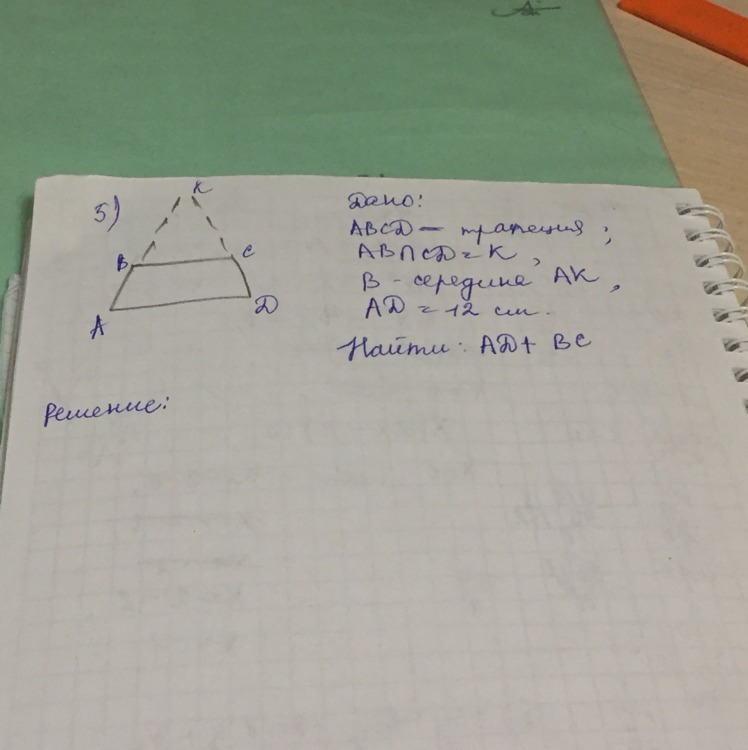 5)
K
B
C
A
D
Дано:
ABCD - трапеция;
AB∩CD = K,
B - середина AK,
AD = 12 см.
Найти: AD + BC
Решение: